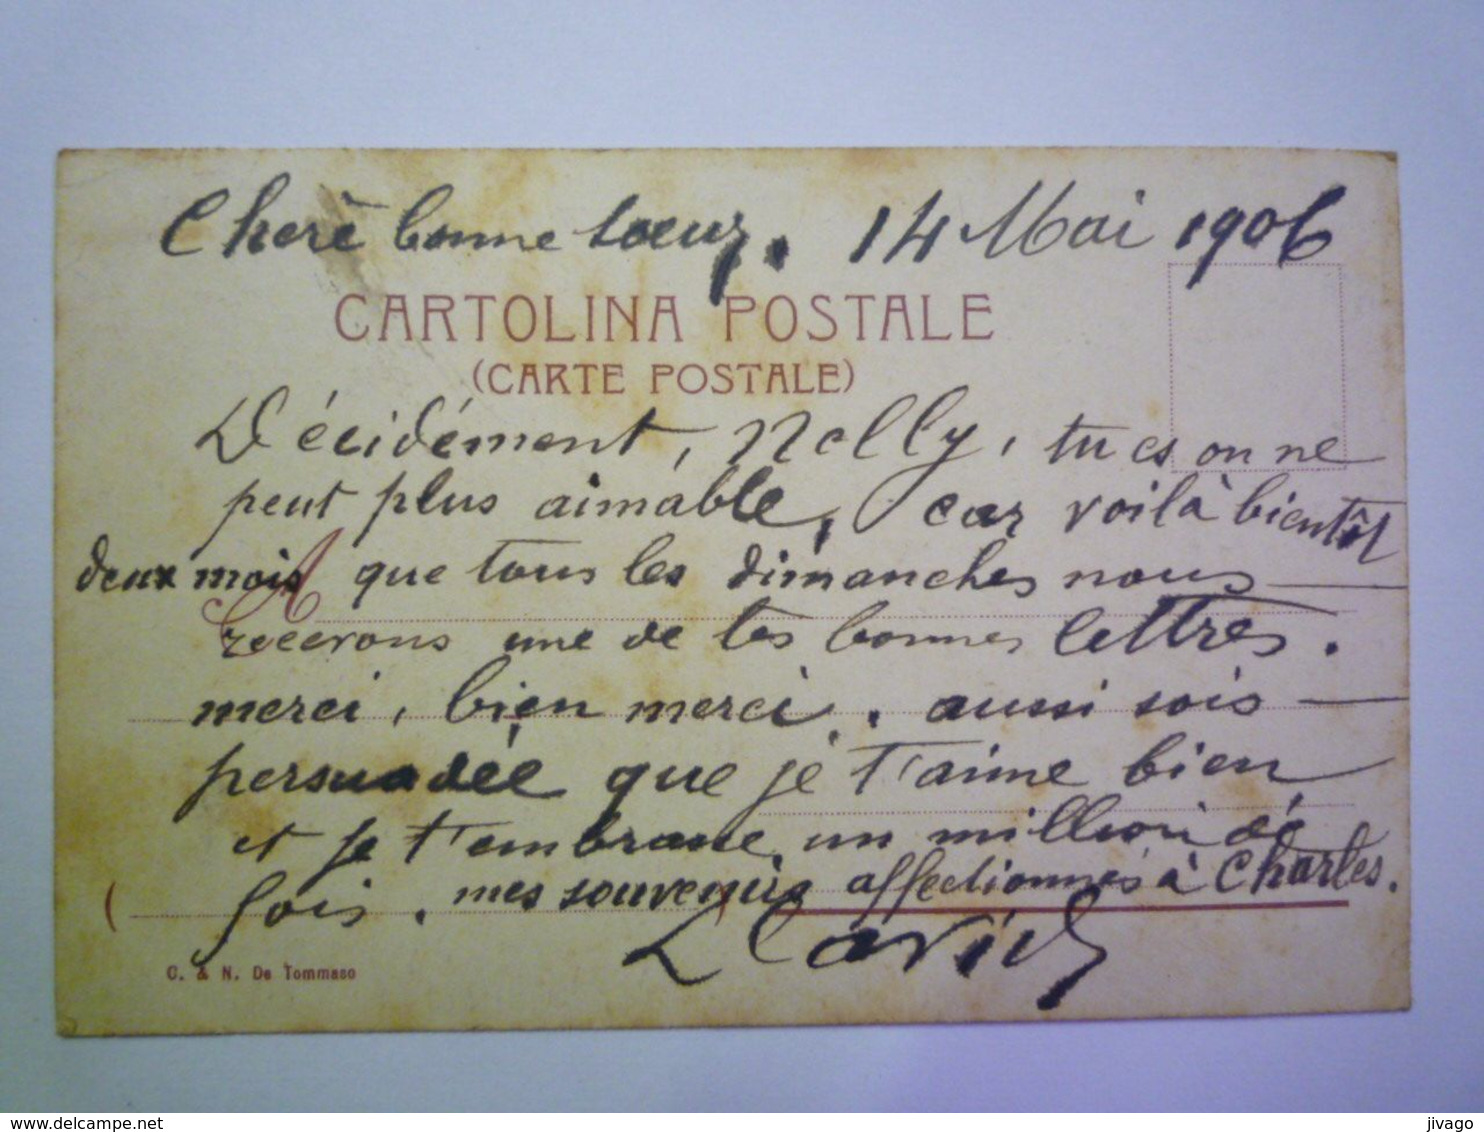 Chère bonne soeur. 14 Mai 1906
CARTOLINA POSTALE
(CARTE POSTALE)
Décidément, Nelly, tu es on ne
peut plus aimable, car voilà bientôt
deux mois que tous les dimanches nous
A
recevons une de tes bonnes lettres.
merci, bien merci. aussi sois
persuadée que je t'aime bien
et je t'embrasse un million de
fois. mes souvenirs affectionnés à Charles.
(
C. & N. De Tommaso
jivago
www.delcampe.net